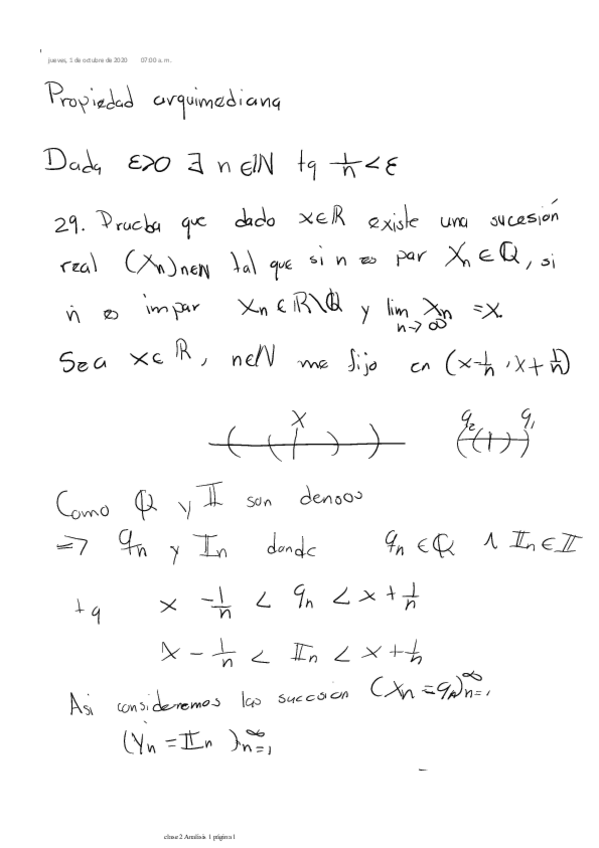 jueves, 1 de octubre de 2020 07:00 a. m.
Propiedad arquimediana
Dada ε>0 ∃ n∈ℕ tq 1/n < ε
29. Prueba que dado x∈ℝ existe una sucesión
real (Xn)n∈ℕ tal que si n es par Xn ∈ ℚ, si
n es impar Xn ∈ ℝ\ℚ y lim n→∞ Xn = x.
Sea x∈ℝ, n∈ℕ me fijo en (x-1/n, x+1/n)
x q2 q1
Como ℚ y 𝕀 son densos
=> qn y 𝕀n donde qn ∈ ℚ ∧ 𝕀n ∈ 𝕀
tq x - 1/n < qn < x + 1/n
x - 1/n < 𝕀n < x + 1/n
Asi consideremos las sucesion (Xn = qn)∞n=1
(Yn = 𝕀n)∞n=1
clase 2 Analisis 1 página 1